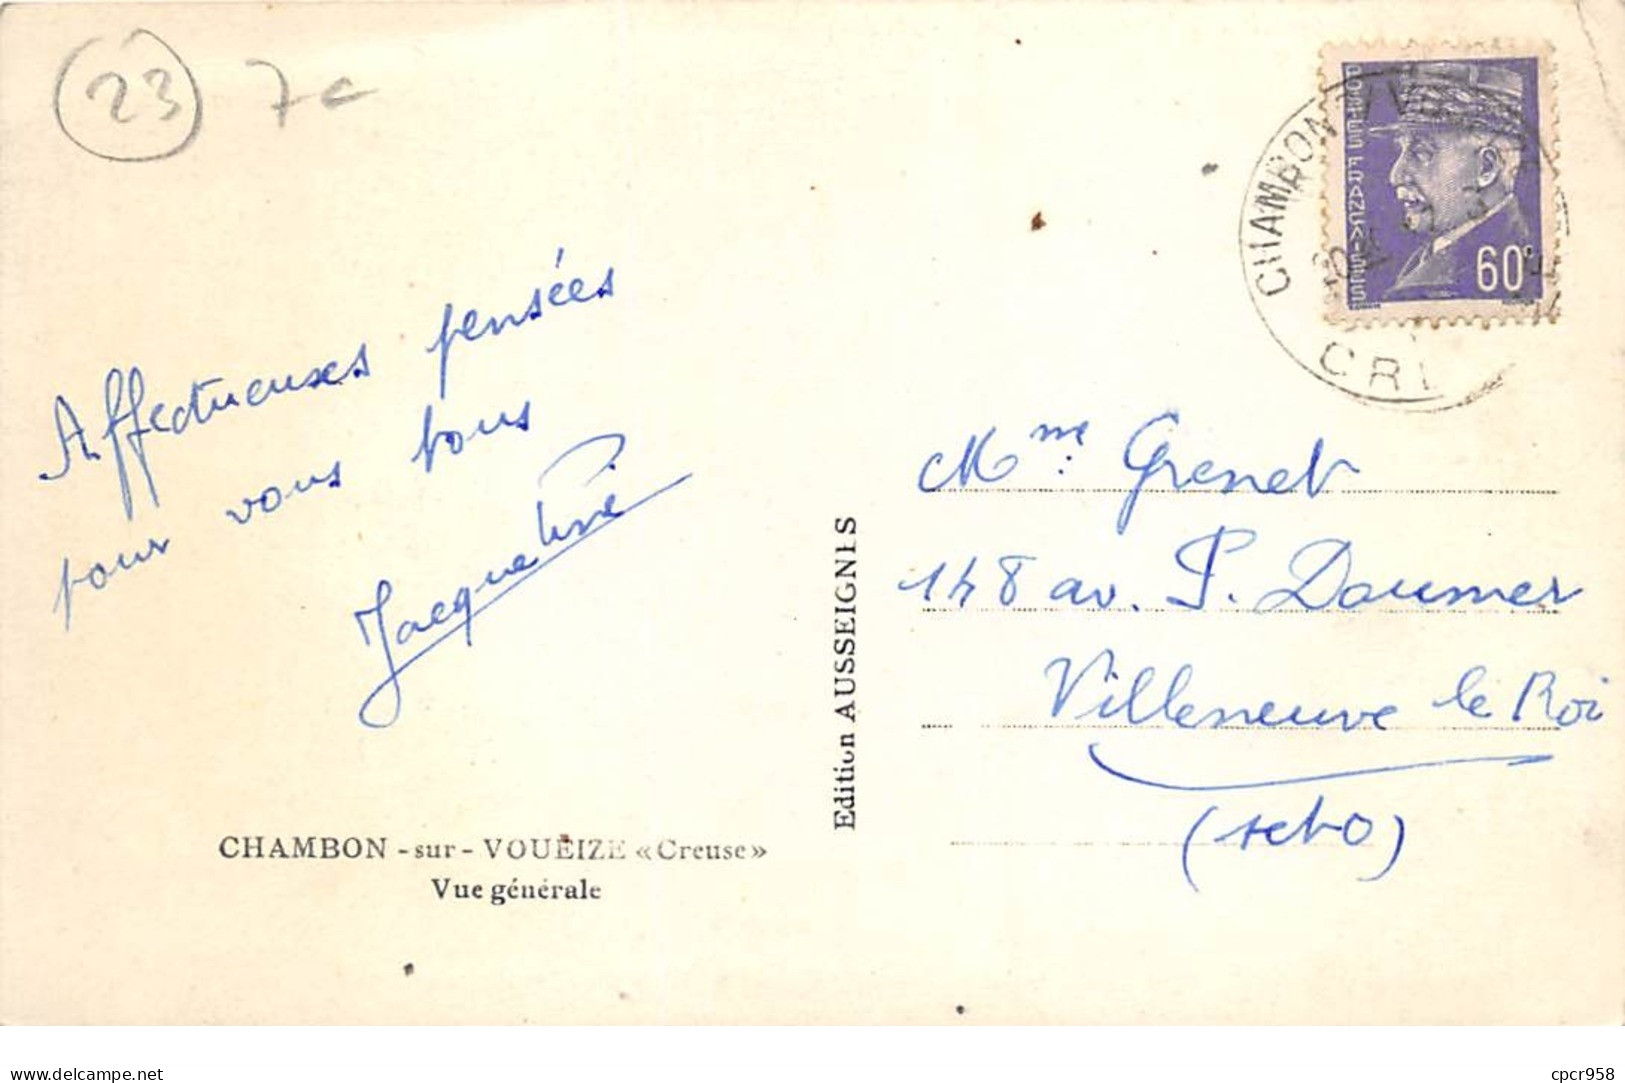 23 7c
CHAMBON
CRE
POSTES FRANÇAISES
60
Affectueuses pensées
pour vous tous
Jacqueline
Mme Grenet
148 av. P. Doumer
Villeneuve le Roi
(s et O)
Edition AUSSEIGNES
CHAMBON - sur - VOUEIZE «Creuse»
Vue générale
delcampe.net
cpcr958